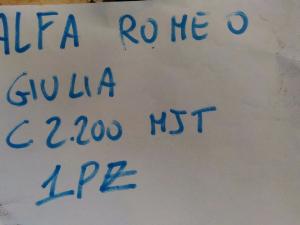 ALFA ROMEO
GIULIA
C 2.200 MJT
1PZ